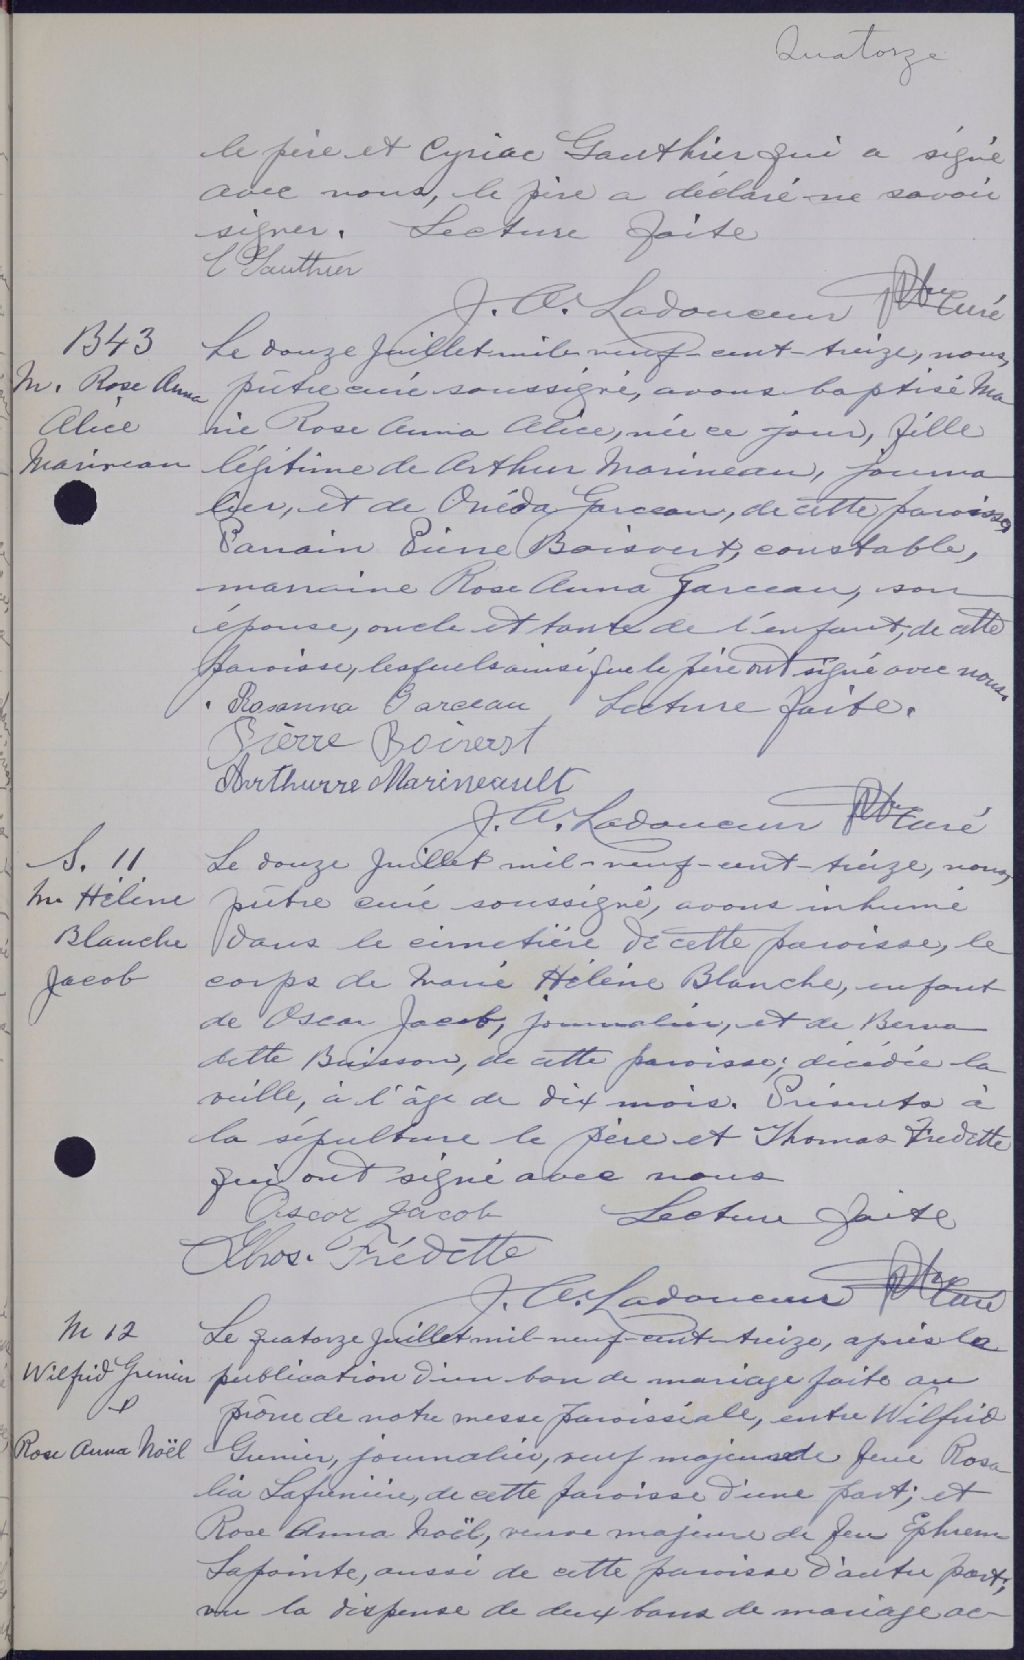 Quatorze
le père et Cyriac Gauthier qui a signé
avec nous, le père a déclaré ne savoir
signer. Lecture faite
C Gauthier
J. A. Ladouceur Ptre Curé
B43
M. Rose Anna
Alice
Marineau
Le douze Juillet mil-neuf-cent-treize, nous,
prêtre curé soussigné, avons baptisé Ma
rie Rose Anna Alice, née ce jour, fille
légitime de Arthur Marineau, journa
lier, et de Onéda Garceau, de cette paroisse,
Parrain Pierre Boisvert, constable,
marraine Rose Anna Garceau, son
épouse, oncle et tante de l'enfant, de cette
paroisse, lesquels ainsi que le père ont signé avec nous.
Rosanna Garceau Lecture faite.
Pierre Boirerst
Arthurre Marineault
J. A. Ladouceur Ptre Curé
S. 11
M Hélène
Blanche
Jacob
Le douze Juillet mil-neuf-cent-treize, nous,
prêtre curé soussigné, avons inhumé
dans le cimetière de cette paroisse, le
corps de Marie Hélène Blanche, enfant
de Oscar Jacob, journalier, et de Berna
dette Buisson, de cette paroisse; décédée la
veille, à l'âge de dix mois. Présents à
la sépulture le père et Thomas Fredette
qui ont signé avec nous
Oscar Jacob Lecture faite
Thos. Frédette
J. A. Ladouceur Ptre Curé
M 12
Wilfrid Grenier
&
Rose Anna Noël
Le quatorze Juillet mil-neuf-cent-treize, après la
publication d'un ban de mariage faite au
prône de notre messe paroissiale, entre Wilfrid
Grenier, journalier, veuf majeur de feue Rosa
lia Lafrenière, de cette paroisse d'une part; et
Rose Anna Noël, veuve majeure de feu Ephrem
Lapointe, aussi de cette paroisse d'autre part;
vu la dispense de deux bans de mariage ac-